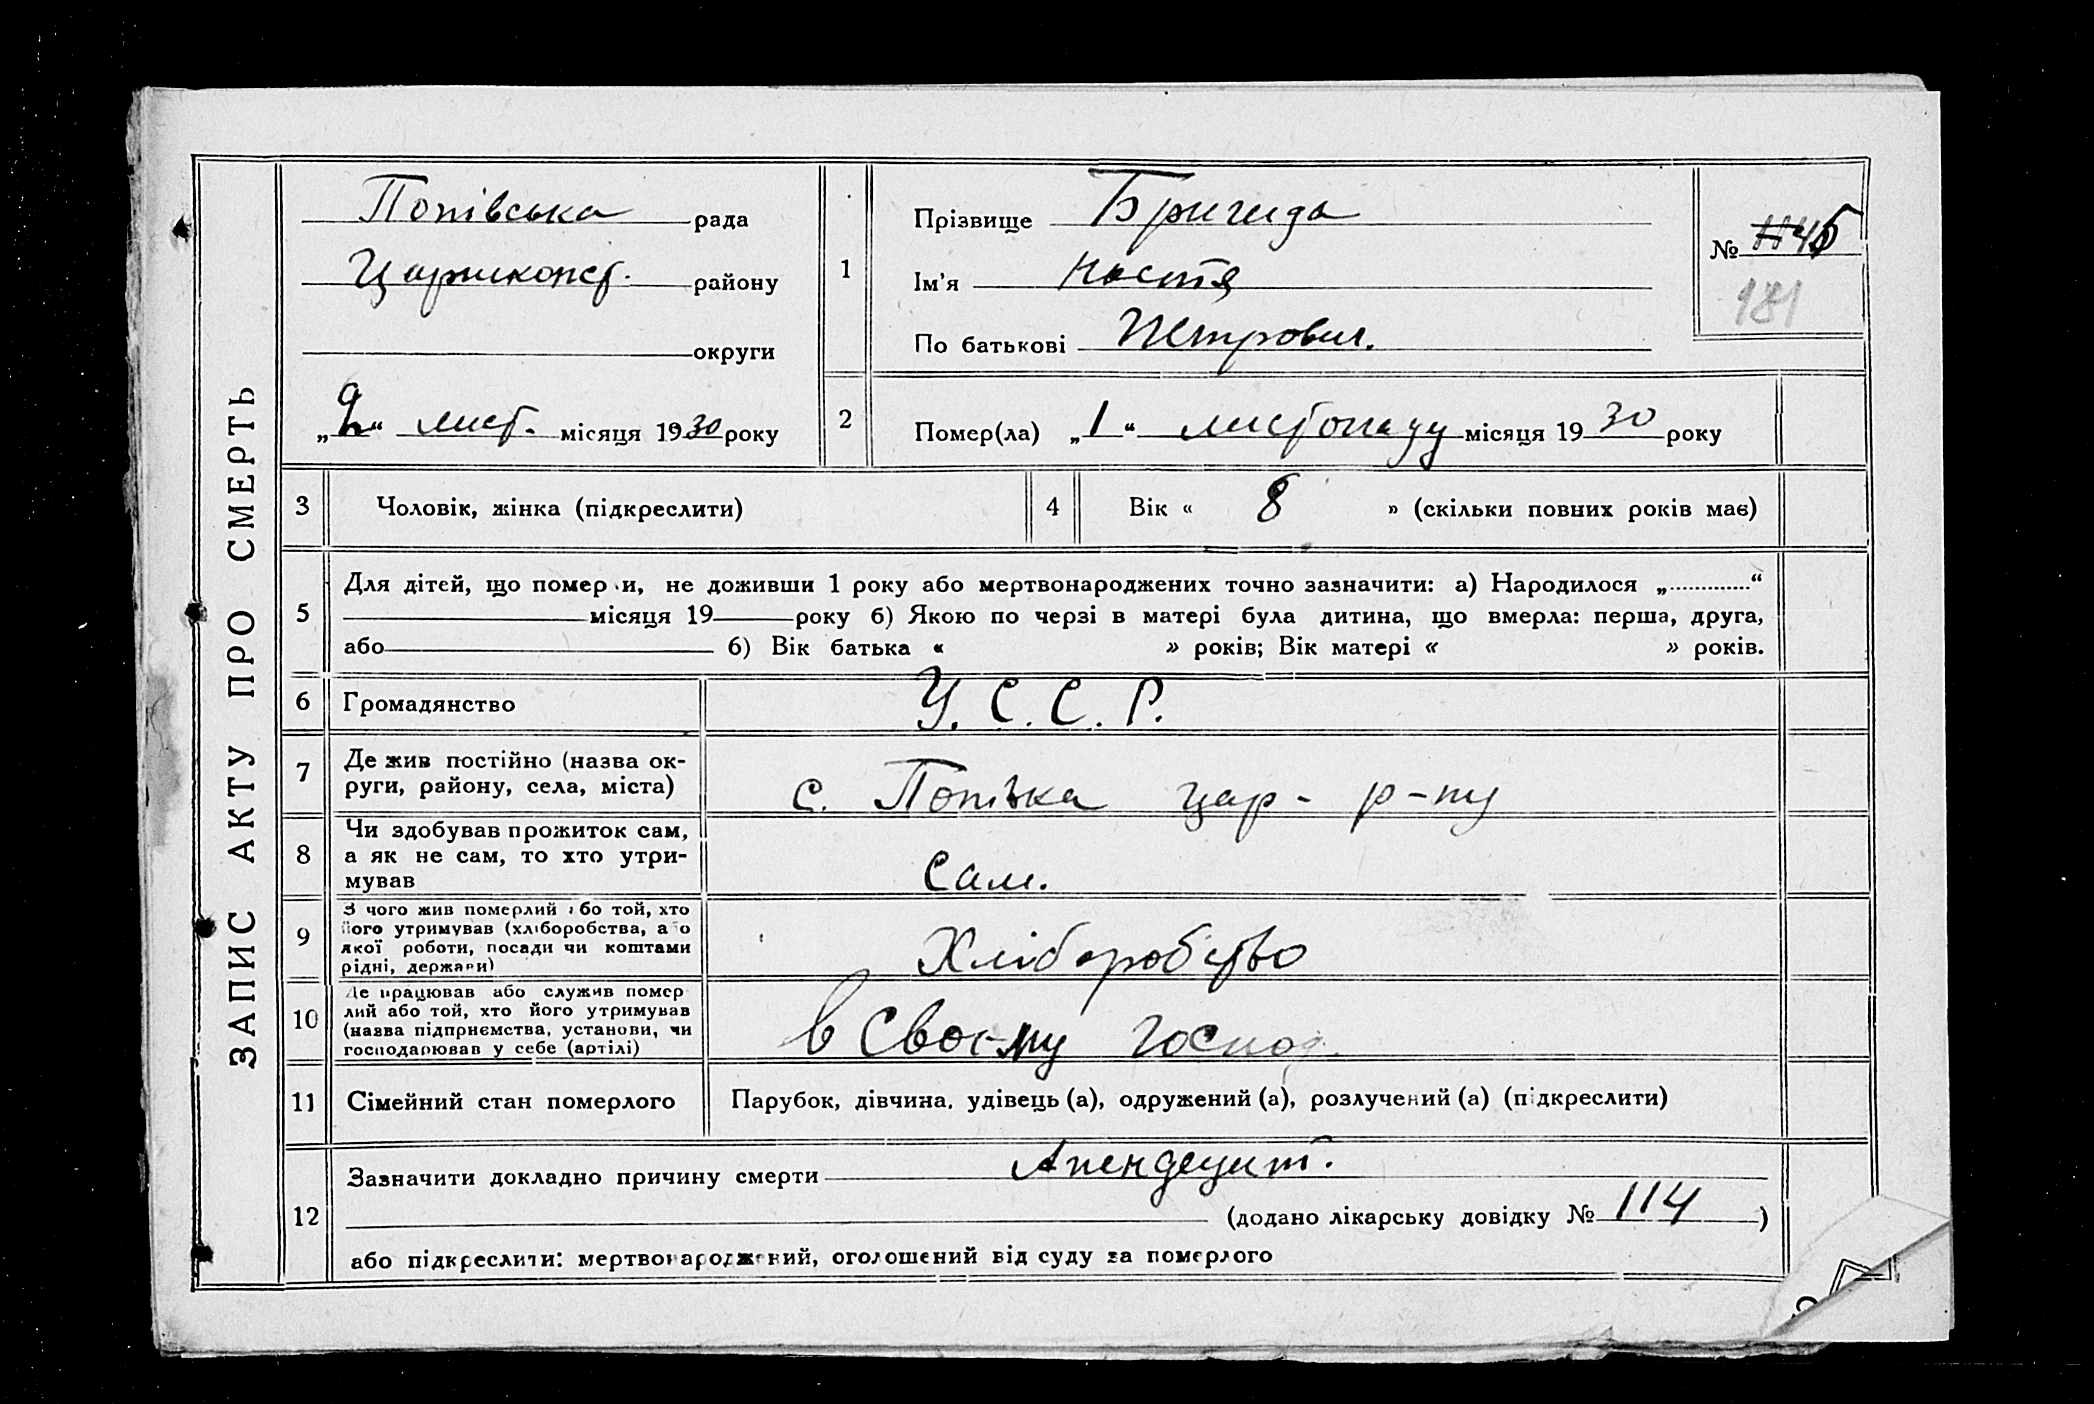 ЗАПИС АКТУ ПРО СМЕРТЬ
Попівська рада
Цариконст. району
округи
„2“ лист. місяця 1930 року
1
Прізвище Бригида
Ім'я Настя
По батькові Петровна.
№ 45
181
2
Помер(ла) „1“ листопаду місяця 1930 року
3 Чоловік, жінка (підкреслити)
4 Вік « 8 » (скільки повних років має)
5
Для дітей, що помер и, не доживши 1 року або мертвонароджених точно зазначити: а) Народилося „............“
місяця 19 року б) Якою по черзі в матері була дитина, що вмерла: перша, друга,
або б) Вік батька « » років; Вік матері « » років.
6 Громадянство У. С. С. Р.
7
Де жив постійно (назва ок-
руги, району, села, міста)
с. Попівка цар- р-ну
8
Чи здобував прожиток сам,
а як не сам, то хто утри-
мував
Сам.
9
З чого жив померлий або той, хто
його утримував (хліборобства, або
якої роботи, посади чи коштами
рідні, держави)
Хліборобство
10
Де працював або служив помер
лий або той, хто його утримував
(назва підприємства, установи, чи
господарював у себе (артілі)
в своєму господ.
11 Сімейний стан померлого
Парубок, дівчина, удівець (а), одружений (а), розлучений (а) (підкреслити)
12
Зазначити докладно причину смерти Апендецит.
(додано лікарську довідку № 114)
або підкреслити: мертвонароджений, оголошений від суду за померлого